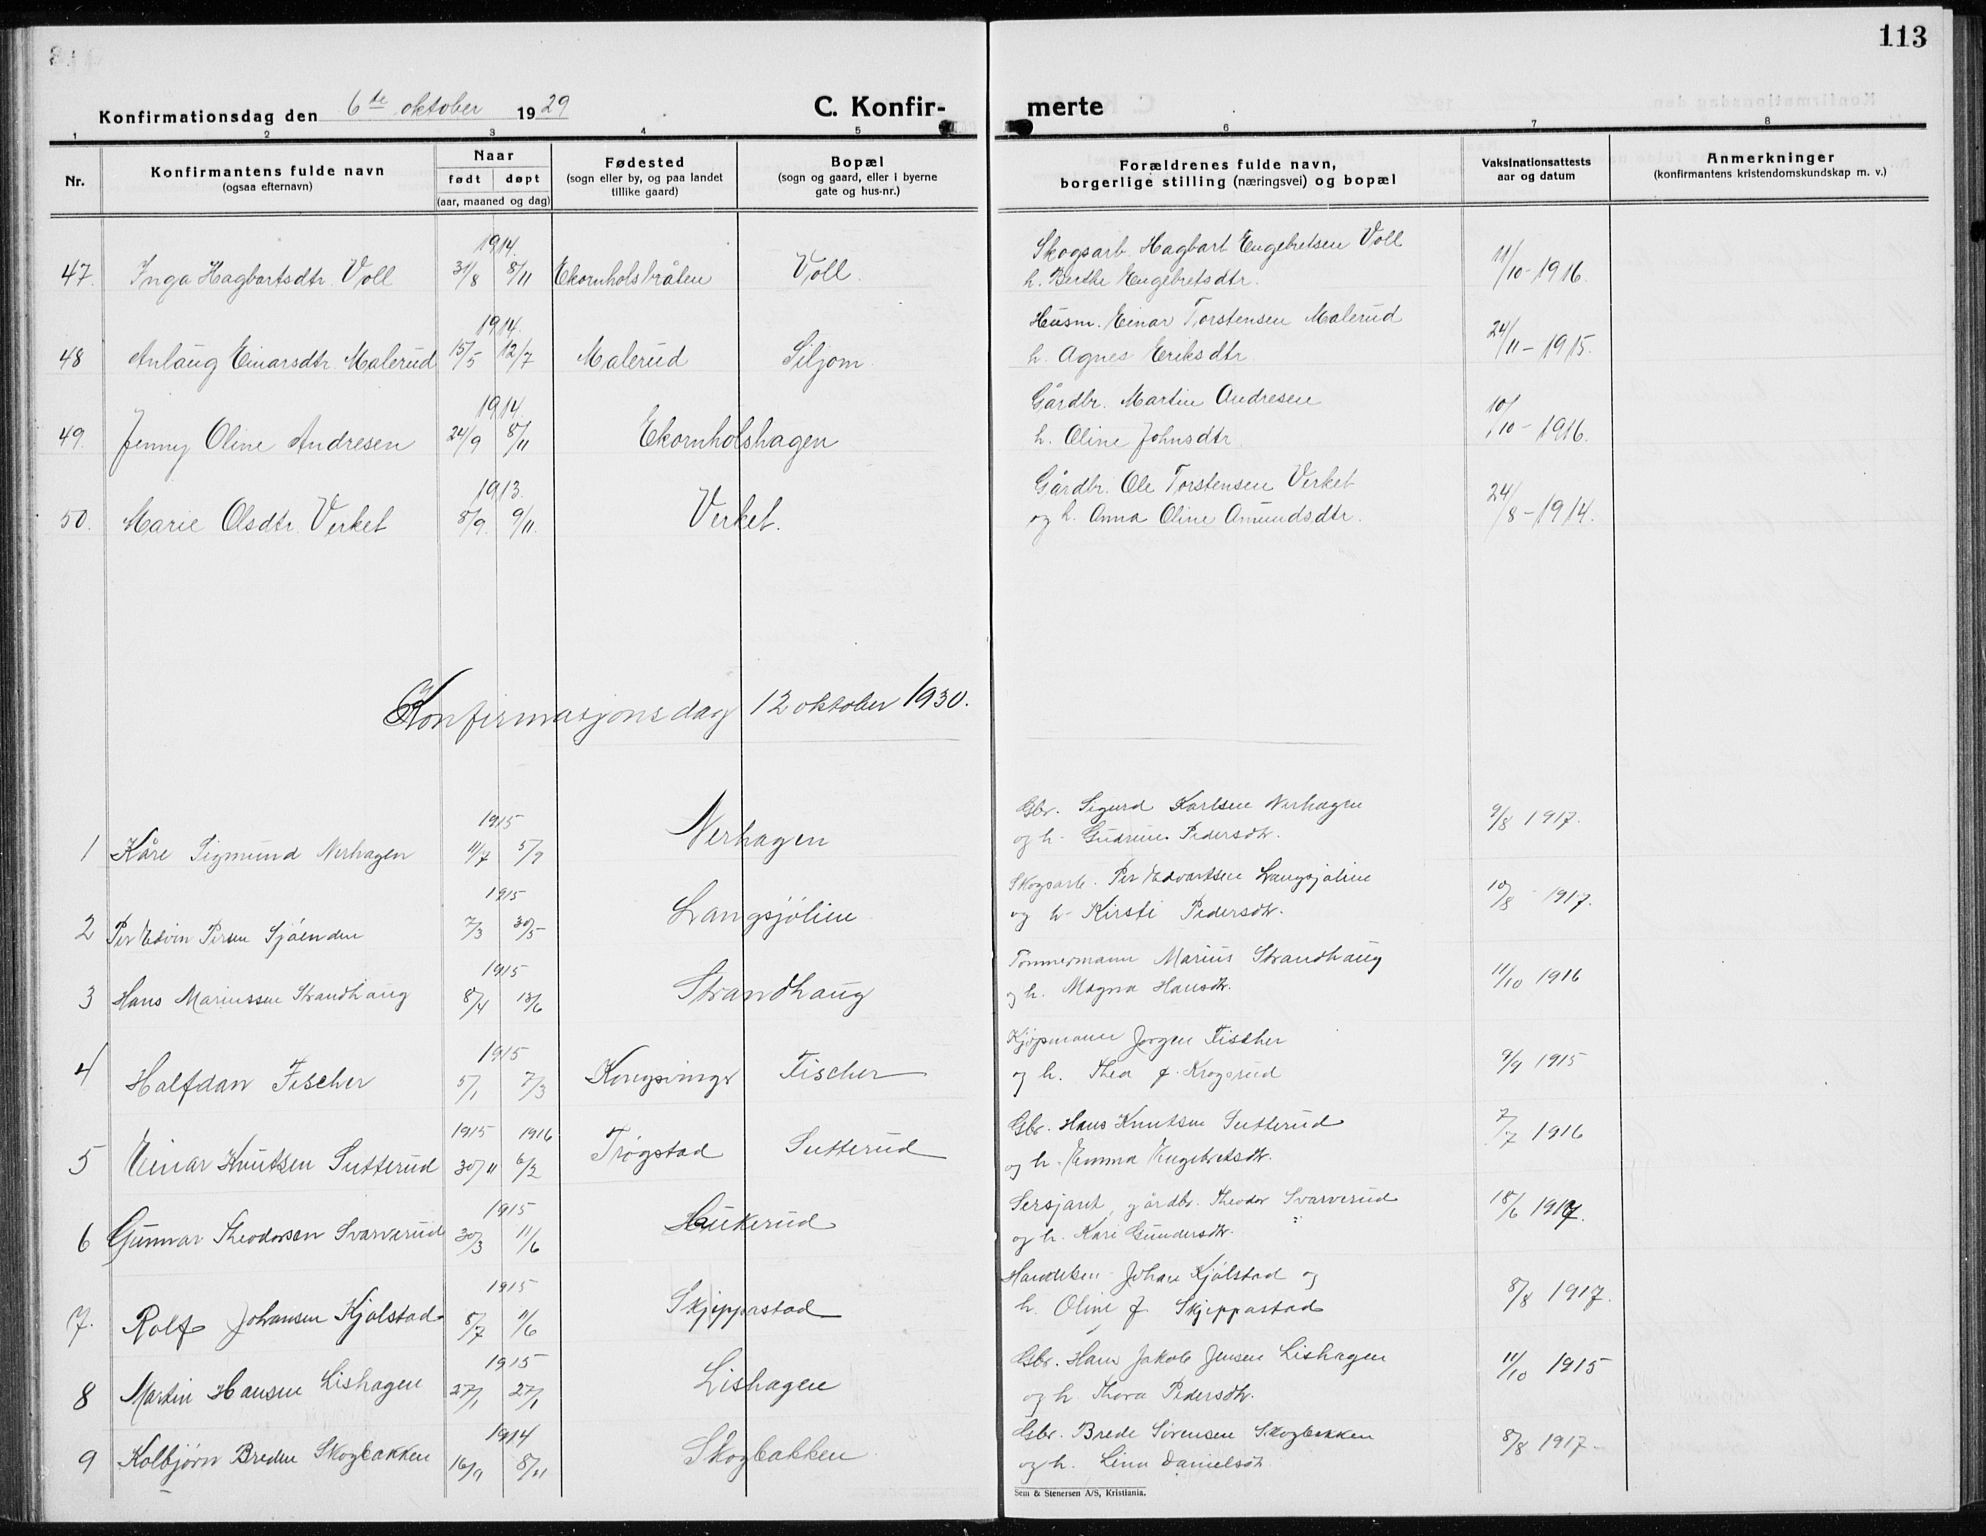 113
Konfirmationsdag den 6te oktober 1929 C. Konfir-merte
1 2 3 4 5 6 7 8
Nr.
Konfirmantens fulde navn
(ogsaa efternavn)
Naar
født døpt
(aar, maaned og dag)
Fødested
(sogn eller by, og paa landet
tillike gaard)
Bopæl
(sogn og gaard, eller i byerne
gate og hus-nr.)
Forældrenes fulde navn,
borgerlige stilling (næringsvei) og bopæl
Vaksinationsattests
aar og datum
Anmerkninger
(konfirmantens kristendomskundskap m. v.)
1914. Skogsarb. Hagbart Engebretsen Voll
47. Inga Hagbartsdtr. Voll 31/8 8/11 Ekornholsbråten Voll. h. Berthe Engebretsdtr. 11/10-1916.
1914. Husm. Einar Torstensen Malerud
48 Anlaug Einarsdtr. Malerud 15/5 12/7 Malerud Siljom. h. Agnes Eriksdtr. 24/11-1915.
1914. Gårdbr. Martin Andresen
49. Jenny Oline Andresen 24/9 8/11 Ekornholshagen h. Oline Johnsdtr. 10/10-1916.
1913. Gårdbr. Ole Torstensen Verket
50. Marie Olsdtr. Verket 8/9. 9/11. Verket. og h. Anna Oline Amundsdtr. 24/8-1914.
Konfirmasjonsdag 12 oktober 1930.
1915 Gbr. Sigurd Karlsen Nerhagen
1 Kåre Sigmund Nerhagen 11/7 5/9 Nerhagen og h. Gudrun Pedersdtr. 9/8 1917.
1915 Skogsarb. Per Edvartsen Langsjølien
2 Per Edvin Persen Sjøenden 7/3 30/5 Langsjølien og h. Kirsti Pedersdtr. 10/8 - 1917.
1915 Tømmermann Marius Strandhaug
3 Hans Mariussen Strandhaug 8/4 13/6 Strandhaug og h. Magna Hansdtr. 11/10 1916
1915 Kjøpmann Jørgen Fischer
4 Halfdan Fischer 5/1 7/3 Kongsvinger Fischer og h. Thea f. Krogsrud 9/9 1915
1915 1916 Gbr. Hans Knutsen Sutterud
5 Einar Knutsen Sutterud 30/11 6/2 Trøgstad Sutterud og h. Emma Engebretsdtr. 7/7 1916
1915 Sersjant, gårdbr. Theodor Svarverud
6 Gunnar Theodorsen Svarverud 30/3 11/6 Haukerud og h. Kari Gundersdtr. 18/6 1917.
1915 Johan Kjølstad og
7. Rolf Johansen Kjølstad 8/7 11/6 Skjeppastad h. Oline f. Skjeppastad 8/8 1917.
1915 Gbr. Hans Jakob Jensen Lishagen
8 Martin Hansen Lishagen 27/1 27/1 Lishagen og h. Thora Pedersdtr. 11/10 1915
1914 Gbr. Brede Sørensen Skogbakken
9 Kolbjørn Breden Skogbakken 16/9 8/11 Skogbakken og h. Lina Danielsdtr. 8/8 1917-
Sem & Stenersen A/S, Kristiania.